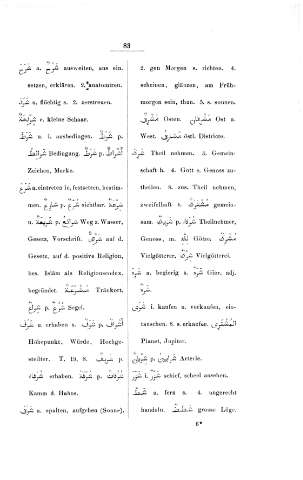 83
شَرَحَ a. ausweiten, aus ein.
setzen, erklären. 2. anatomiren.
شَرَدَ u. flüchtig s. 2. zerstreuen.
kleine Schaar.
شَرَطَ u. i. ausbedingen. شَرْط p.
Bedingung. شَرَط p. أَشْرَاط
Zeichen, Marke.
شَرَعَ a. eintreten in, festsetzen, bestim-
men. Saite. p.
u. شَرَائِع p. شَرِيعَة Weg z. Wasser,
Gesetz, Vorschrift. auf d.
Gesetz, auf d. positive Religion,
bes. Islâm als Religionscodex.
begründet. Tränkort.
شِرَاع p. شُرُع Segel.
شَرُفَ u. erhaben s. شَرَف p. أَشْرَاف
Höhepunkt. Würde. Hochge-
stellter. T. 19, 8. شَرِيف p.
شُرَفَاء erhaben. شُرْفَة p. شُرُفَات
Kamm d. Hahns.
شَرَقَ u. spalten, aufgehen (Sonne),
2. gen Morgen s. richten. 4.
scheinen, glänzen, am Früh-
morgen sein, thun. 5. s. sonnen.
مَشْرِق Osten. مَشْرِقَانِ Ost u.
West. مَشْرِقِيّ östl. Districte.
شَرِكَ Theil nehmen. 3. Gemein-
schaft h. 4. Gott s. Genoss zu-
theilen. 8. zus. Theil nehmen,
zweifelhaft s. مُشْتَرَك gemein-
sam. شَرِيك p. شُرَكَاء Theilnehmer,
Genosse, m. الله Götze. مُشْرِك
Vielgötterer. شِرْك Vielgötterei.
شَرِهَ a. begierig s. شَرَه Gier, adj.
شَرِه
شَرَى i. kaufen u. verkaufen, ein-
tauschen. 8. s. erkaufen. المُشْتَرِي
Planet, Jupiter.
شِرْيَان p. شَرَايِين Arterie.
شَزَرَ i. شَزْر schief, scheel ansehen.
شَطَّ u. fern s. 4. ungerecht
handeln. شَطَط grosse Lüge.
6*